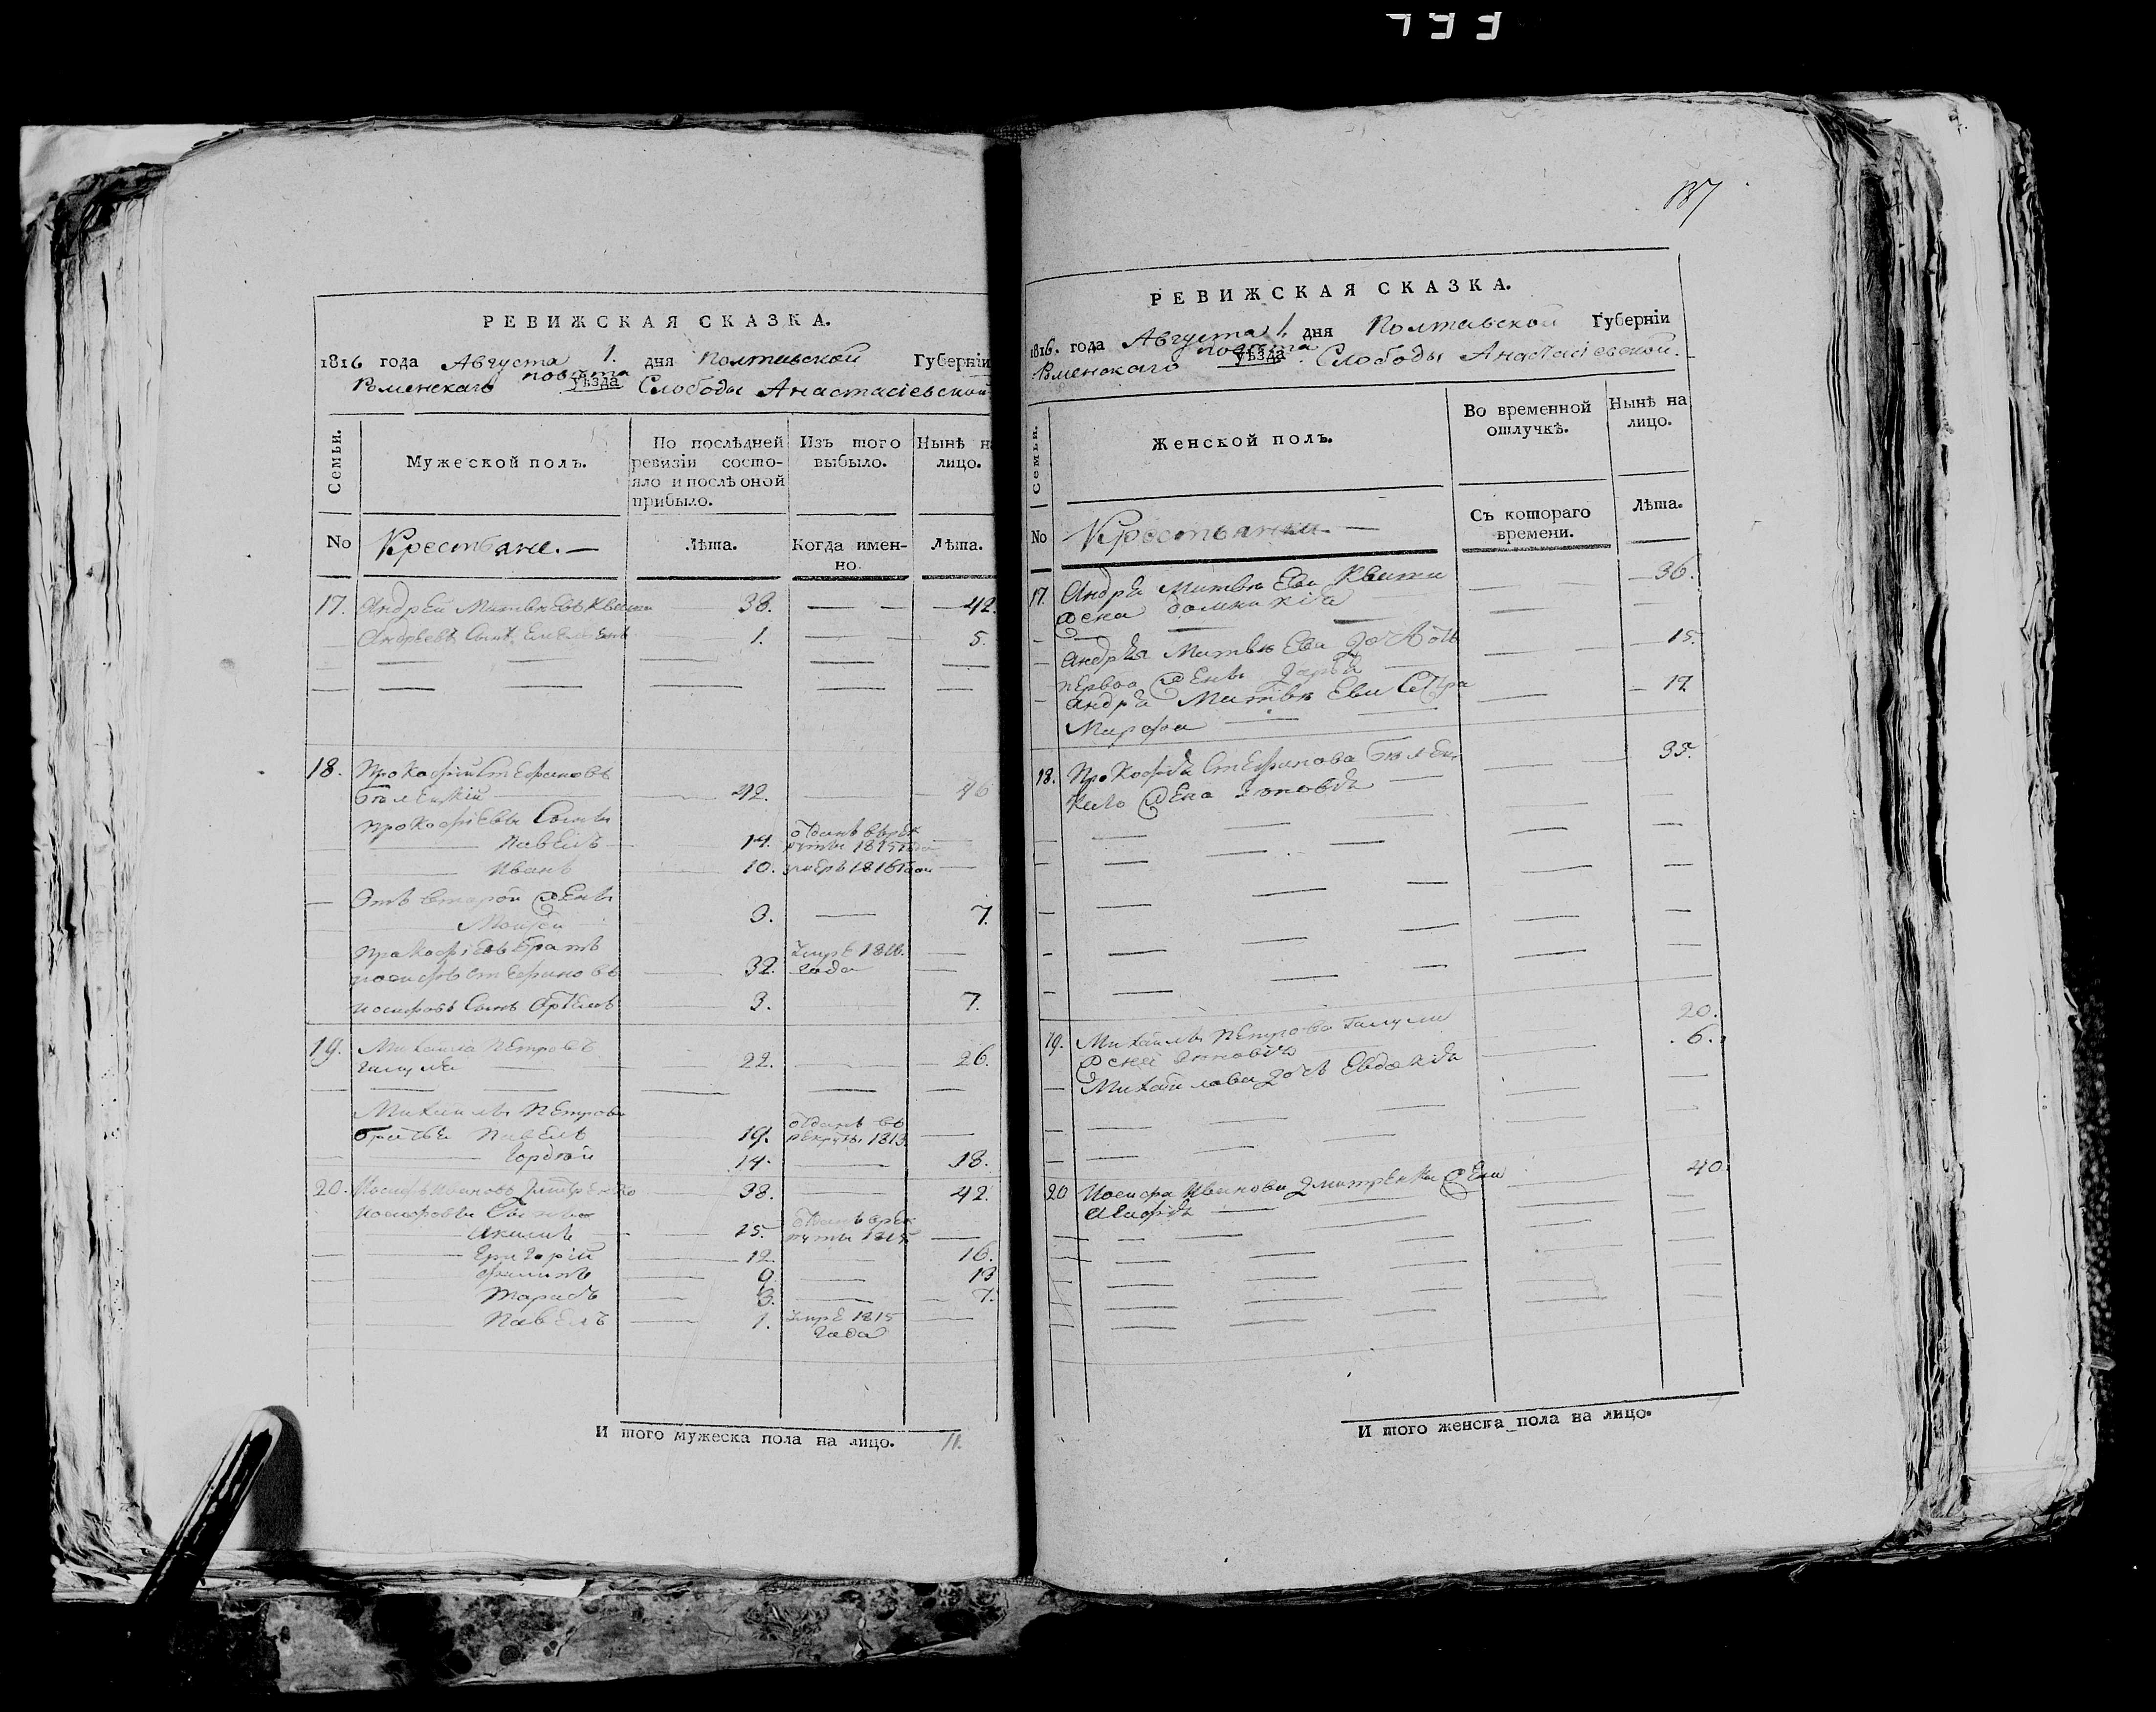 137
РЕВИЖСКАЯ СКАЗКА.
1816 года Августа 1. дня Полтавской Губерніи
Роменскаго повѣта уѣзда Слободы Анастасіевской
Семьи.
Мужеской полъ.
По послѣдней ревизіи состояло и послѣ оной прибыло.
Изъ того выбыло.
Нынѣ на лицо.
No
Крестьяне.
Лѣта.
Когда именно.
Лѣта.
17. Андрей Матвѣевъ Квита 38. 42.
Андреевъ сынъ Емельянъ 1. 5.
18. Прокофій Стефановъ
42. 46
Прокофіевы сыны
Павелъ 14. отданъ въ рекруты 1815 года
Иванъ 10. умеръ 1816 года
Отъ второй жены
Мойсей 3. 7.
Прокофіевъ братъ
Иосифъ Стефановъ 32. умре 1816. года
Иосифовъ сынъ Артемъ 3. 7.
19. Михайла Петровъ
22. 26.
Михайлы Петрова
братья Павелъ 19. отданъ въ рекруты 1813
Гордѣй 14. 18.
20. Иосифъ Ивановъ Дмитренко 38. 42.
Иосифовы сыны
15. отданъ в рекруты 1815
Григорій 12. 16.
Филипъ 9 13
Тарасъ 3. 7.
Павелъ 1. умре 1815
года
И того мужеска пола на лицо. 11.
РЕВИЖСКАЯ СКАЗКА.
1816. года Августа 1. дня Полтавской Губерніи
Роменскаго повѣта уѣзда Слободы Анастасіевской.
Семьи.
Женской полъ.
Во временной отлучкѣ.
Нынѣ на лицо.
No
Крестьянки.
Съ котораго времени.
Лѣта.
17. Андрея Матвѣева Квиты 36.
жена Домникія
Андрея Матвѣева дочь отъ 15.
первой жены Дарья
Андрея Матвѣева сестра 17
Марфа
18. Прокофія Стефанова 35.
жена
19. Михайлы Петрова Галуши 20.
Михайлова дочь Евдокія 6.
20 Иосифа Иванова Дмитренка жена 40.
Агафія
И того женска пола на лицо.